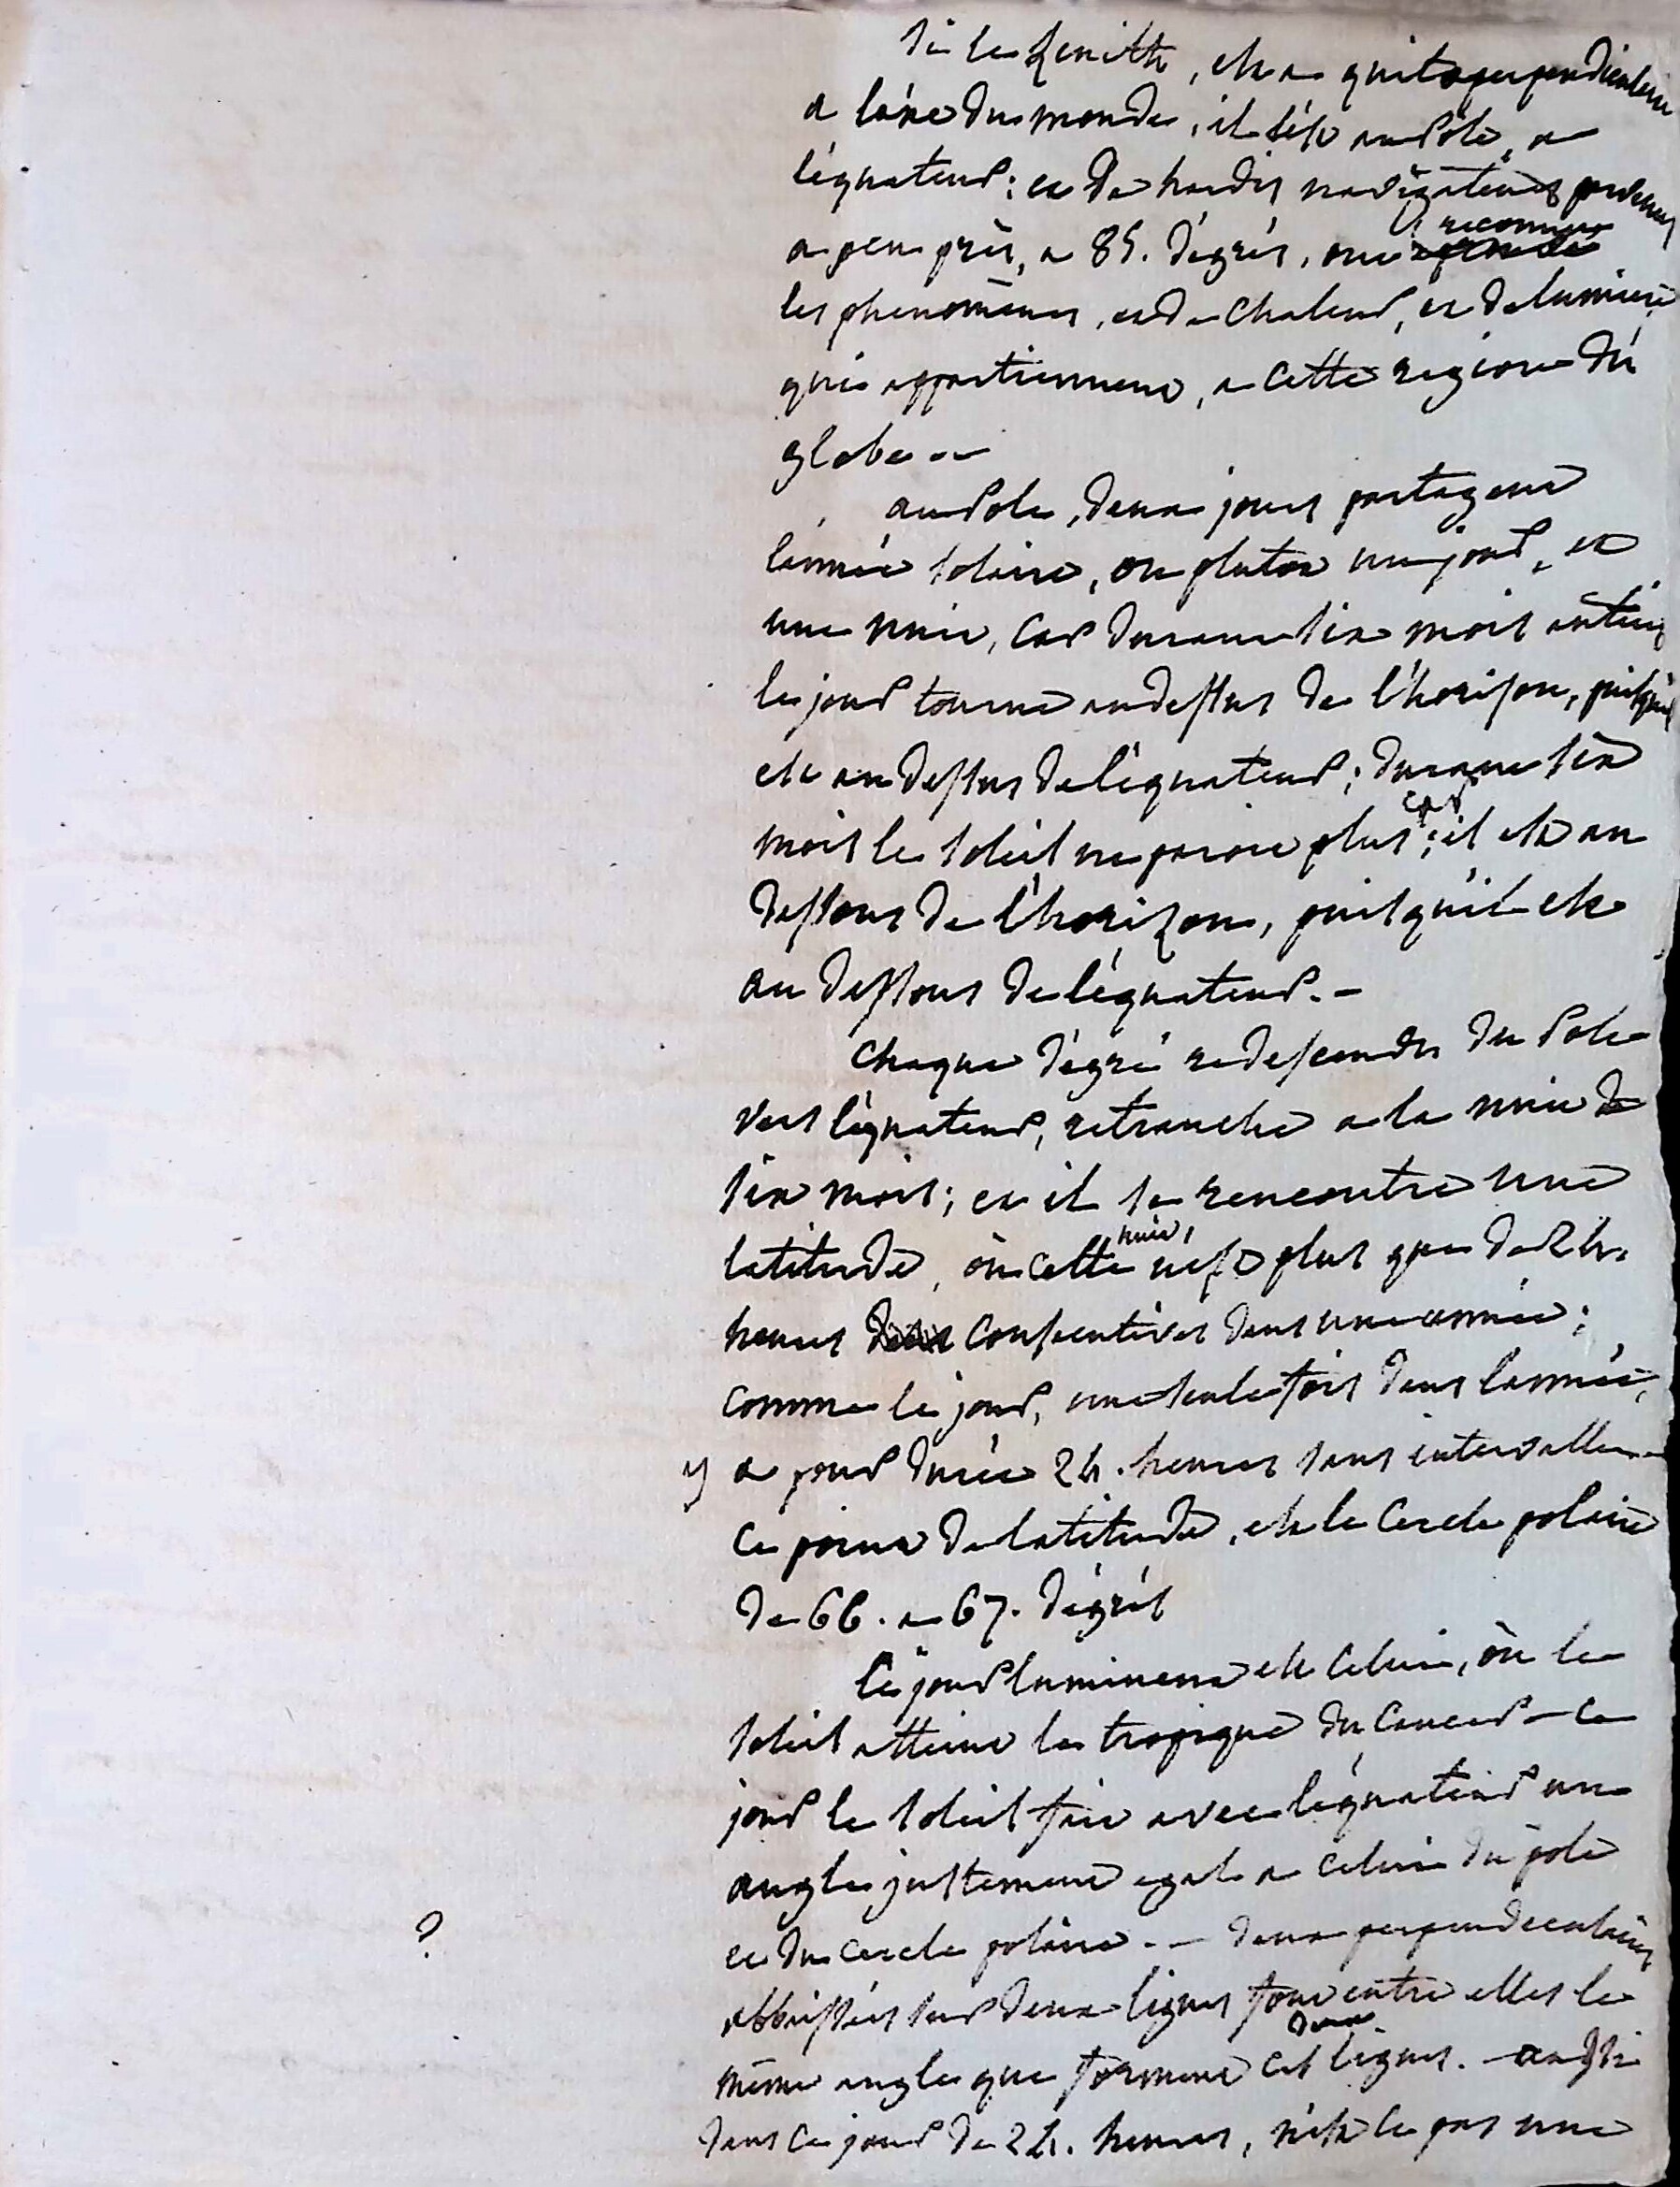 si le zenith, est a perpendiculaire
a l'axe du monde, il l'est au Pôle, a
l'equateur: et de hardis navigateurs parvenus
a peu près, a 85. dégrés, ont reconnu
les phenomènes, et de chaleur, et de lumiere
qui appartiennent, a cette region du
globe. —
au Pole, deux jours partagent
l'année solaire, ou plutot un jour, et
une nuit, car durant six mois entiers
le jour tourne au dessus de l'horison, puisqu'il
est au dessus de l'équateur; durant six
mois le soleil ne paroit plus; car il est au
dessous de l'horizon, puisqu'il est
au dessous de l'équateur. —
Chaque dégré redescendu du Pole
vers l'équateur, retranche a la nuit de
six mois; et il se rencontre une
latitude, où cette nuit, n'est plus que de 24.
heures consecutives dans une année;
comme le jour, une seule fois dans l'année,
y a pour durée 24. heures sans intervalle. —
Ce point de latitude, est le Cercle polaire
de 66. a 67. dégrés
Ce jour lumineux est celui, où le
soleil atteint le tropique du Cancer — ce
jour le soleil fait avec l'équateur un
angle justement egal a celui du pole
et du cercle polaire. — deux perpendiculaires
?
abbaissées sur deux lignes font entre elles le
même angle que forment ces deux lignes. — aussi
dans ce jour de 24. heures, n'est ce pas une